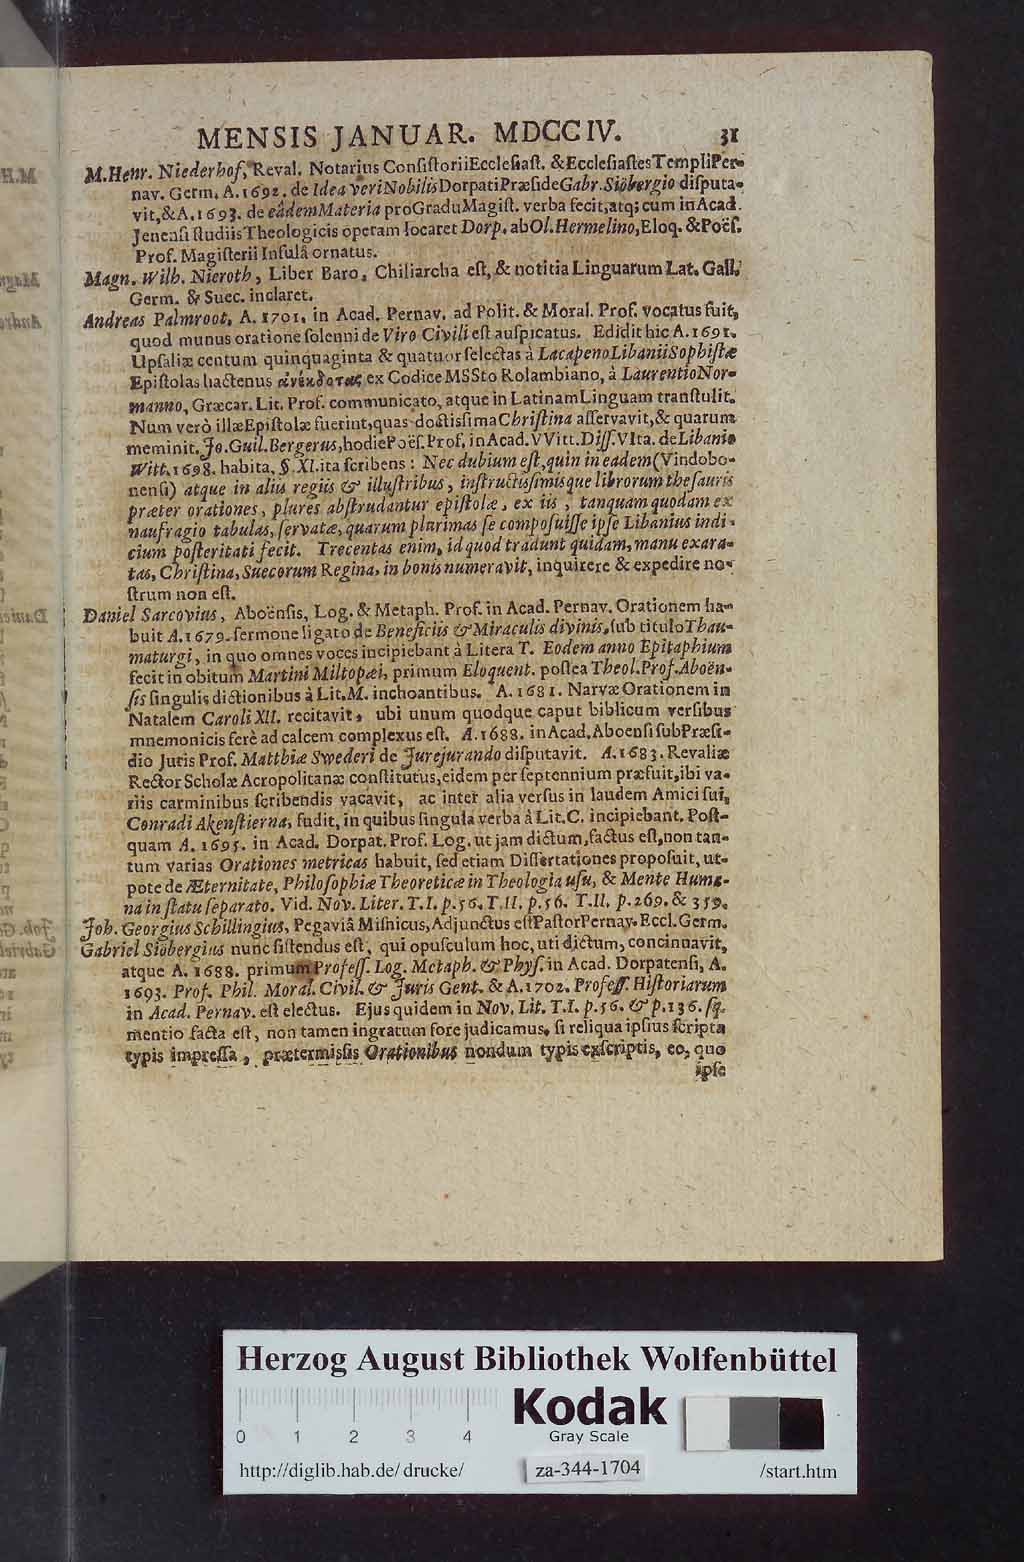 MENSIS JANUAR. MDCCIV. 31
M. Henr. Niederhof, Reval. Notarius Conſiſtorii Eccleſiaſt. & Eccleſiaſtes Templi Per-
nav. Germ. A. 1692. de Idea veri Nobilis Dorpati Præſide Gabr. Siöbergio diſputa-
vit, & A. 1693. de eâdem Materia pro Gradu Magiſt. verba fecit, atq; cum in Acad.
Jenenſi ſtudiis Theologicis operam locaret Dorp. ab Ol. Hermelino, Eloq. & Poëſ.
Prof. Magiſterii Inſulâ ornatus.
Magn. Wilh. Nieroth, Liber Baro, Chiliarcha eſt, & notitia Linguarum Lat. Gall.
Germ. & Suec. inclaret.
Andreas Palmroot, A. 1701. in Acad. Pernav. ad Polit. & Moral. Prof. vocatus fuit,
quod munus oratione ſolenni de Viro Civili eſt auſpicatus. Edidit hic A. 1691.
Upſaliæ centum quinquaginta & quatuor ſelectas à Lacapeno Libanii Sophiſtæ
Epiſtolas hactenus ἀνέκδοτας ex Codice MSSto Rolambiano, à Laurentio Nor-
manno, Græcar. Lit. Prof. communicato, atque in Latinam Linguam tranſtulit.
Num verò illæ Epiſtolæ fuerint, quas doctiſſima Chriſtina aſſervavit, & quarum
meminit Jo. Guil. Bergerus, hodie Poëſ. Prof. in Acad. VVitt. Diſſ. VIta. de Libanio
Witt. 1698. habita, §. XI. ita ſcribens: Nec dubium eſt, quin in eadem (Vindobo-
nenſi) atque in aliis regiis & illuſtribus, inſtructiſſimisque librorum theſauris
præter orationes, plures abſtrudantur epiſtolæ, ex iis, tanquam quodam ex
naufragio tabulas, ſervatæ, quarum plurimas ſe compoſuiſſe ipſe Libanius indi-
cium poſteritati fecit. Trecentas enim, id quod tradunt quidam, manu exara-
tas, Chriſtina, Suecorum Regina, in bonis numeravit, inquirere & expedire no-
ſtrum non eſt.
Daniel Sarcovius, Aboënſis, Log. & Metaph. Prof. in Acad. Pernav. Orationem ha-
buit A. 1679. ſermone ligato de Beneficiis & Miraculis divinis, ſub titulo Thau-
maturgi, in quo omnes voces incipiebant à Litera T. Eodem anno Epitaphium
fecit in obitum Martini Miltopæi, primum Eloquent. poſtea Theol. Prof. Aboën-
ſis ſingulis dictionibus à Lit. M. inchoantibus. A. 1681. Narvæ Orationem in
Natalem Caroli XII. recitavit, ubi unum quodque caput biblicum verſibus
mnemonicis ferè ad calcem complexus eſt. A. 1688. in Acad. Aboenſi ſub Præſi-
dio Juris Prof. Matthiæ Swederi de Jurejurando diſputavit. A. 1683. Revaliæ
Rector Scholæ Acropolitanæ conſtitutus, eidem per ſeptennium præfuit, ibi va-
riis carminibus ſcribendis vacavit, ac inter alia verſus in laudem Amici ſui,
Conradi Akenſtierna, fudit, in quibus ſingula verba à Lit. C. incipiebant. Poſt-
quam A. 1695. in Acad. Dorpat. Prof. Log. ut jam dictum, factus eſt, non tan-
tum varias Orationes metricas habuit, ſed etiam Diſſertationes propoſuit, ut-
pote de Æternitate, Philoſophiæ Theoreticæ in Theologia uſu, & Mente Huma-
na in ſtatu ſeparato. Vid. Nov. Liter. T. I. p. 56. T. II. p. 56. T. II. p. 269. & 359.
Joh. Georgius Schillingius, Pegaviâ Miſnicus, Adjunctus eſt Paſtor Pernav. Eccl. Germ.
Gabriel Siöbergius nunc ſiſtendus eſt, qui opuſculum hoc, uti dictum, concinnavit,
atque A. 1688. primum Profeſſ. Log. Metaph. & Phyſ. in Acad. Dorpatenſi, A.
1693. Prof. Phil. Moral. Civil. & Juris Gent. & A. 1702. Profeſſ. Hiſtoriarum
in Acad. Pernav. eſt electus. Ejus quidem in Nov. Lit. T. I. p. 56. & p. 136. ſq.
mentio facta eſt, non tamen ingratum fore judicamus, ſi reliqua ipſius ſcripta
typis impreſſa, prætermiſſis Orationibus nondum typis exſcriptis, eo, quo
ipſe
Herzog August Bibliothek Wolfenbüttel
Kodak
0 1 2 3 4 Gray Scale
http://diglib.hab.de/drucke/ za-344-1704 /start.htm